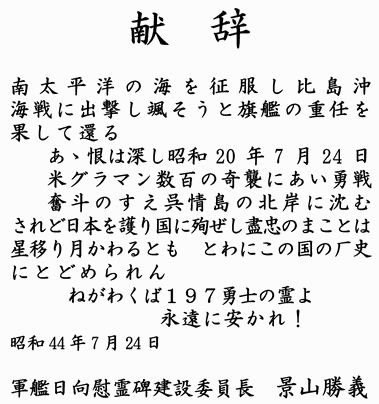 献辞
南太平洋の海を征服し比島沖
海戦に出撃し颯そうと旗艦の重任を
果して還る
あゝ恨は深し昭和20年7月24日
米グラマン数百の奇襲にあい勇戦
奮斗のすえ呉情島の北岸に沈む
されど日本を護り国に殉ぜし盡忠のまことは
星移り月かわるとも とわにこの国の厂史
にとどめられん
ねがわくば197勇士の霊よ
永遠に安かれ!
昭和44年7月24日
軍艦日向慰霊碑建設委員長 景山勝義